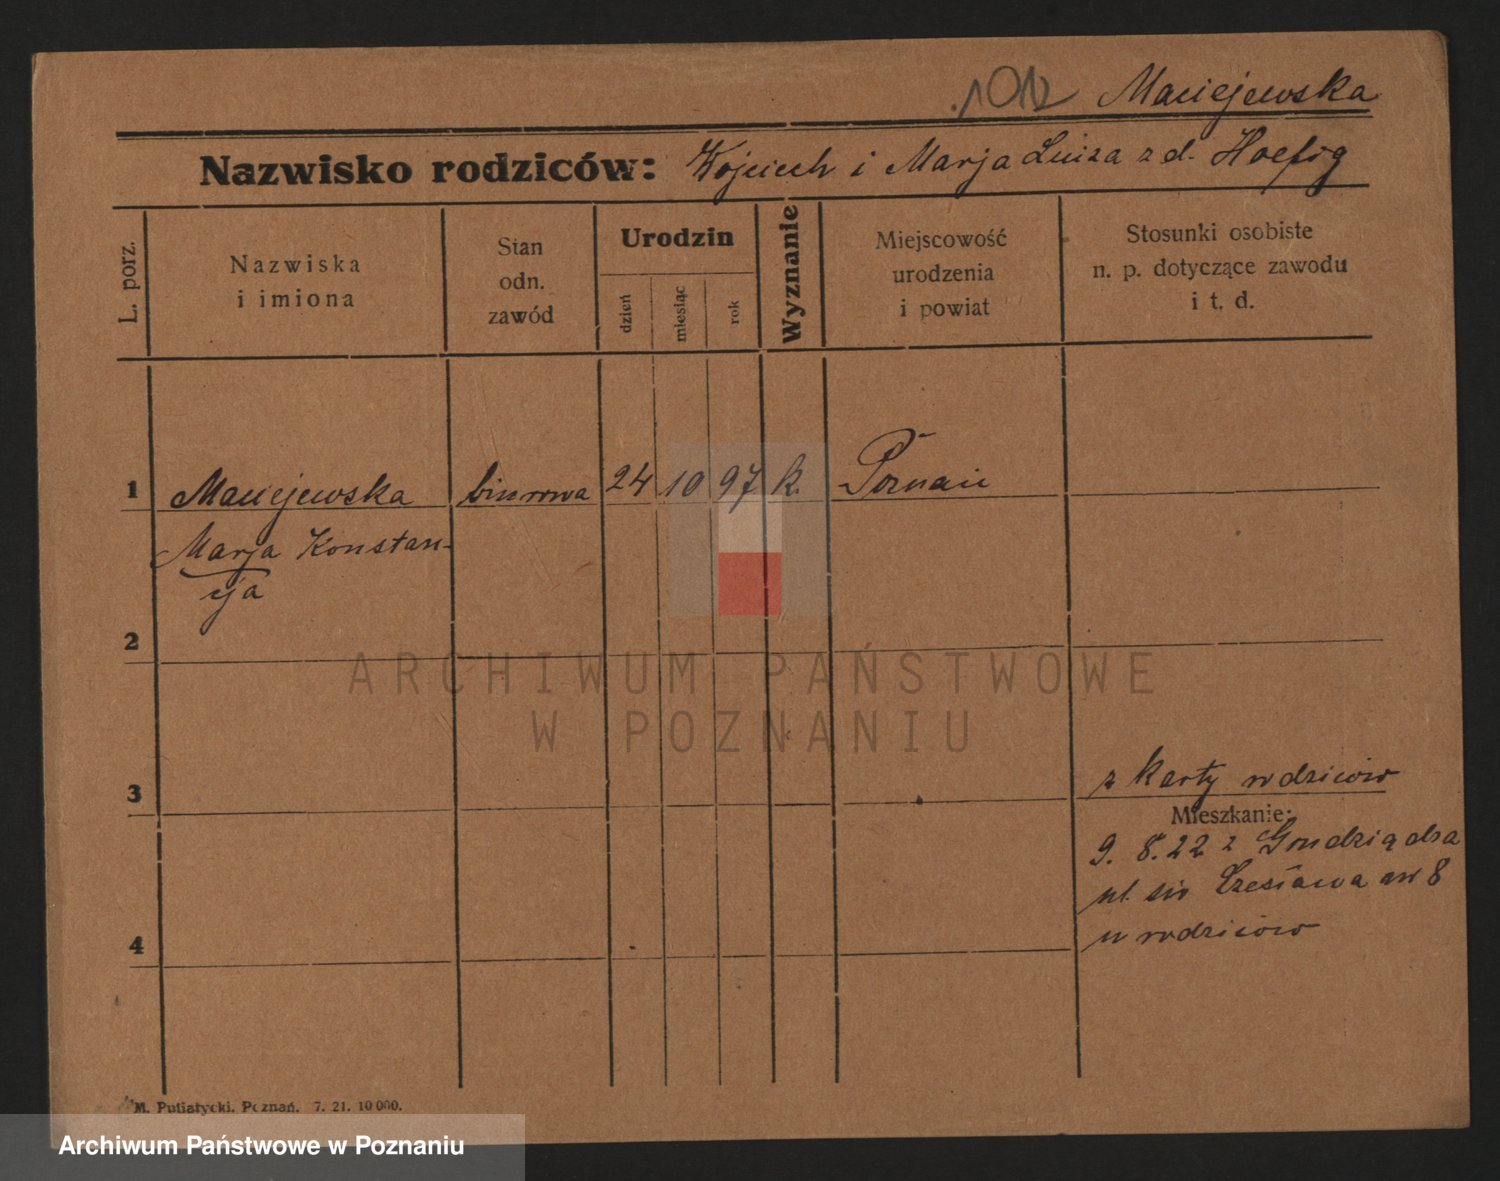 1012 Maciejewska
Nazwisko rodziców: Wojciech i Marja Luiza z d. Hoefig
L. porz.
Nazwiska
i imiona
Stan
odn.
zawód
Urodzin
dzień
miesiąc
rok
Wyznanie
Miejscowość
urodzenia
i powiat
Stosunki osobiste
n. p. dotyczące zawodu
i t. d.
1 Maciejewska biurowa 24 10 97 k. Poznań
Marja Konstan-
cja
2
ARCHIWUM PAŃSTWOWE
W POZNANIU
z karty rodziców
3
Mieszkanie:
9. 8. 22 z Grudziądza
ul. św Czesława nr 8
u rodziców
4
M. Putiatycki, Poznań. 7. 21. 10 000.
Archiwum Państwowe w Poznaniu